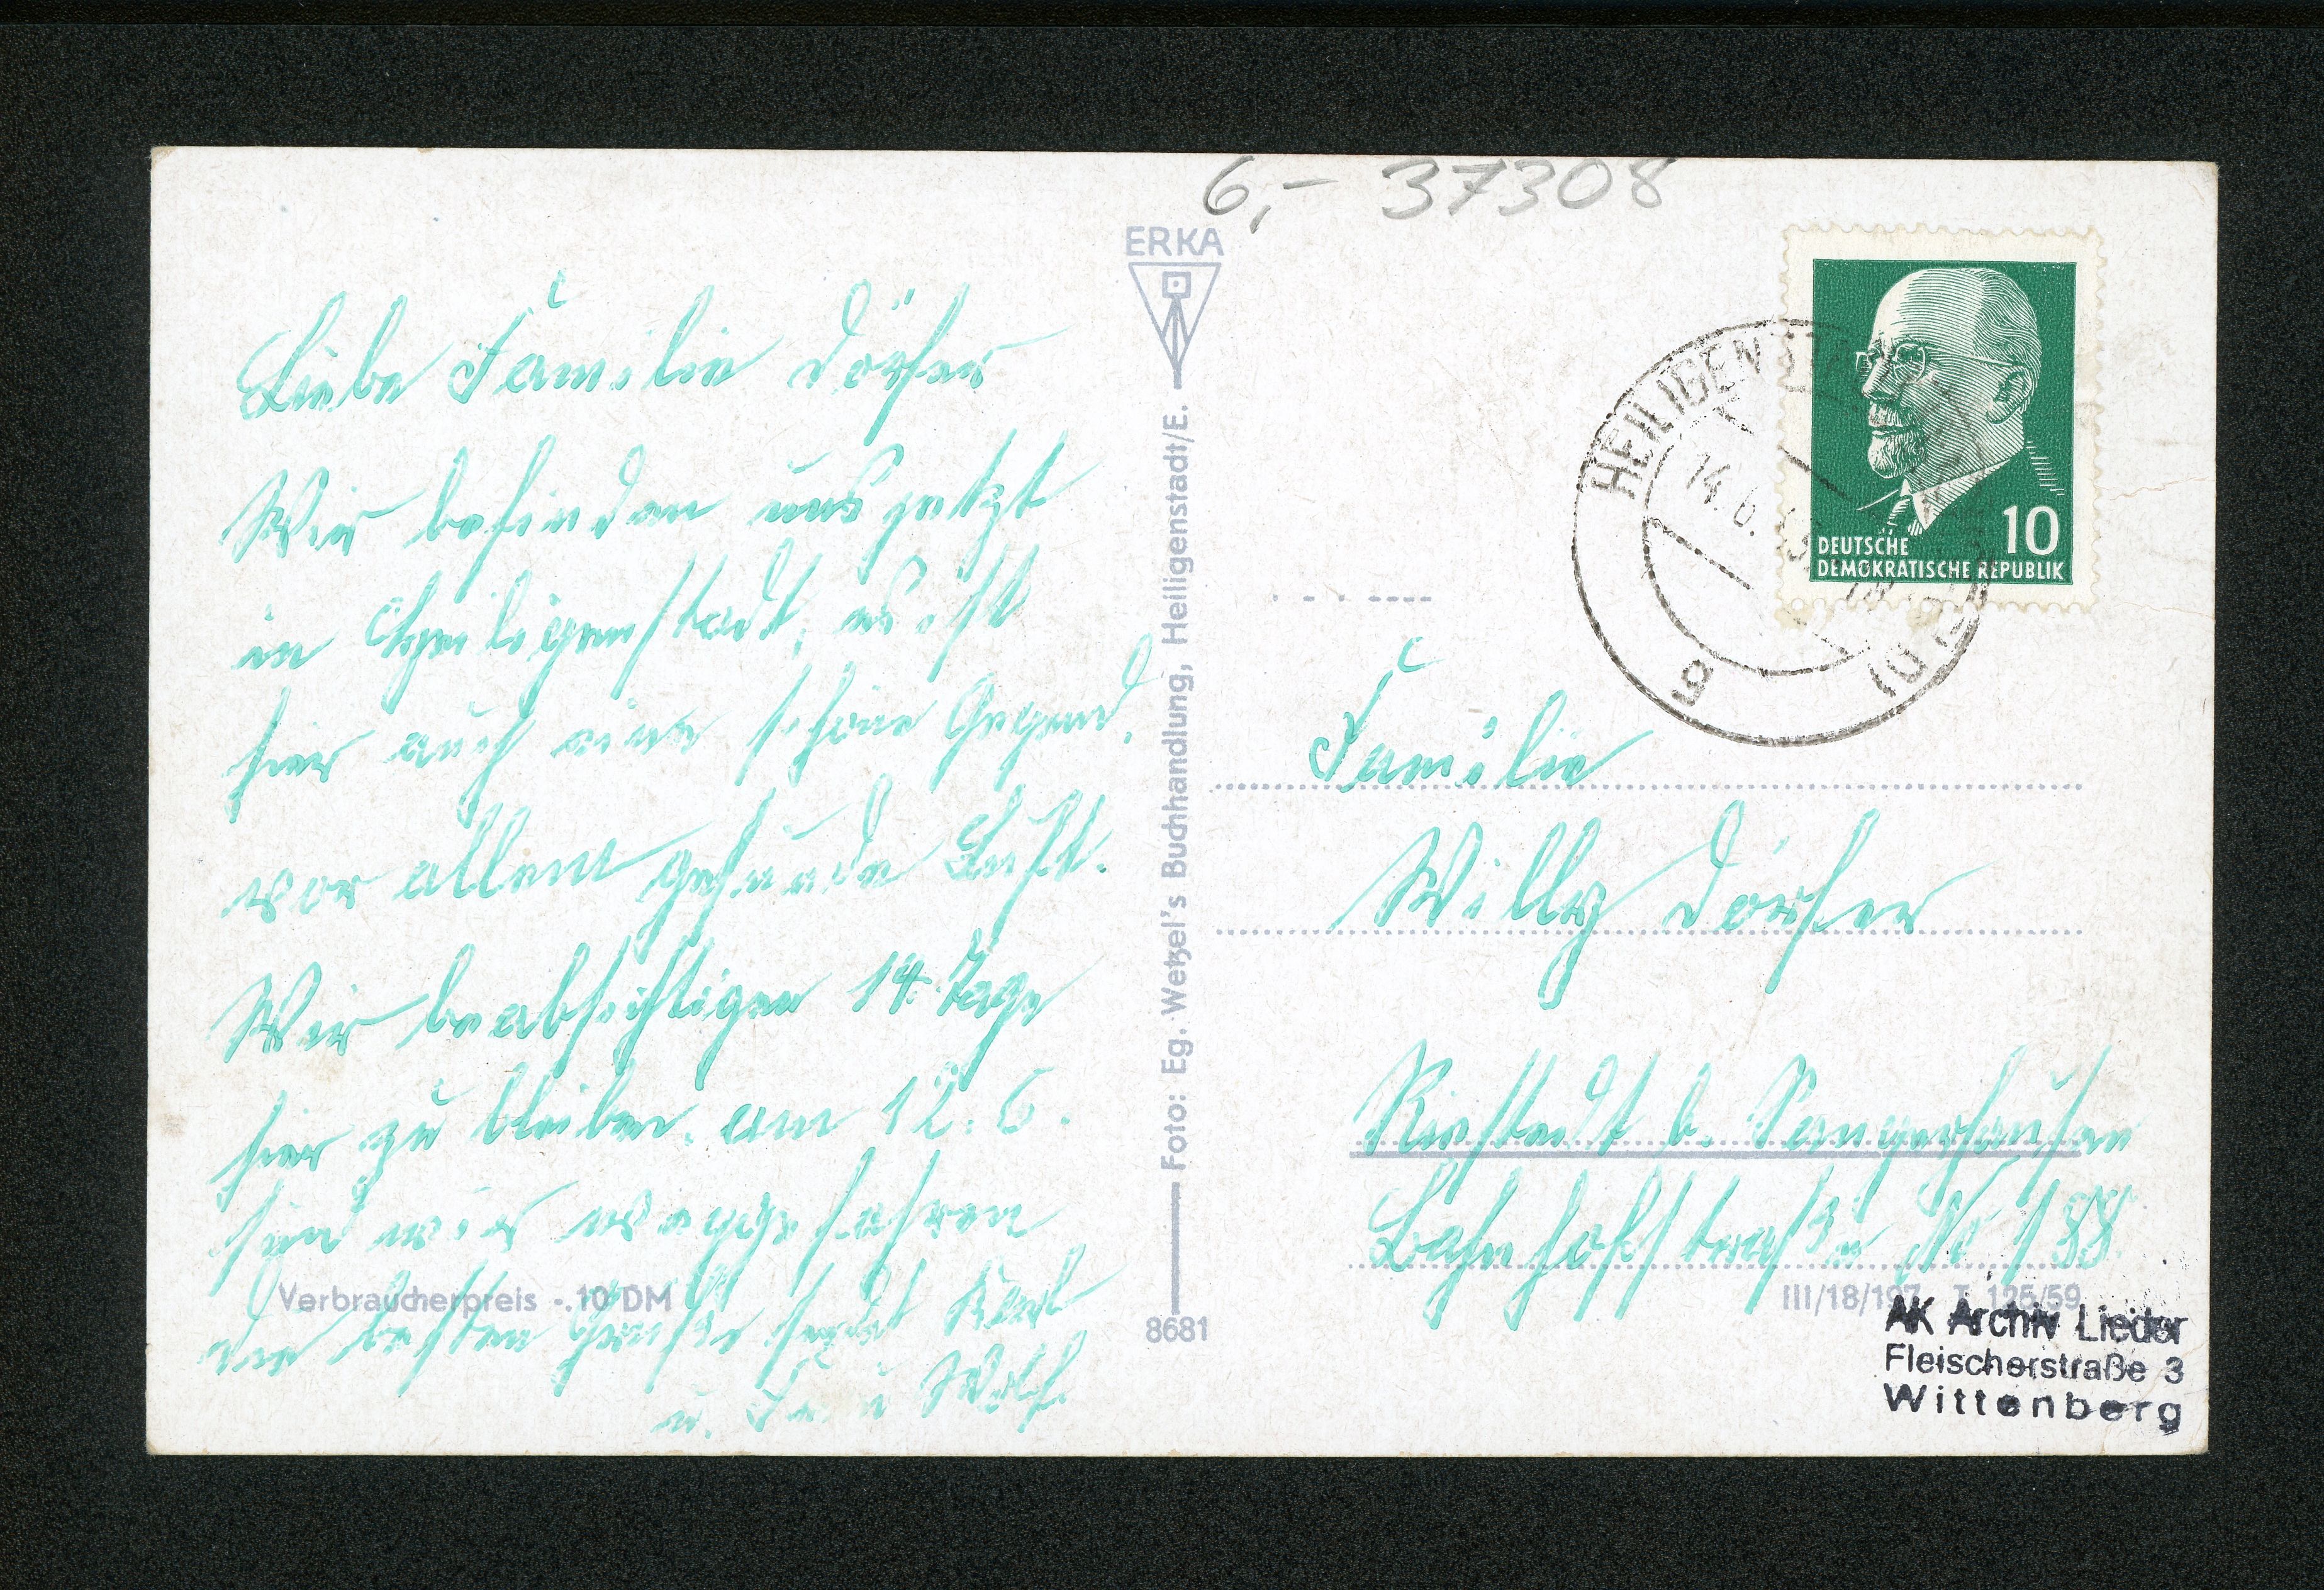 6,- 37308
ERKA
Liebe Familie Dörfer
Wir befinden uns jetzt
in Heiligenstadt, es ist
hier auch eine schöne Gegend,
vor allem gesunde Luft.
Wir beabsichtigen 14. Tage
hier zu bleiben. am 12. 6.
sind wir weggefahren
die besten Grüße sendet Karl
u. Frau Wolf.
Verbraucherpreis -.10 DM
Foto: Eg. Wetzel's Buchhandlung, Heiligenstadt/E.
8681
DEUTSCHE
DEMOKRATISCHE REPUBLIK
10
HEILIGENSTADT
14.6.
Familie
Willy Dörfer
Riestedt b. Sangerhausen
Bahnhofstraße Nr 188
III/18/197 T 125/59
AK Archiv Lieder
Fleischerstraße 3
Wittenberg